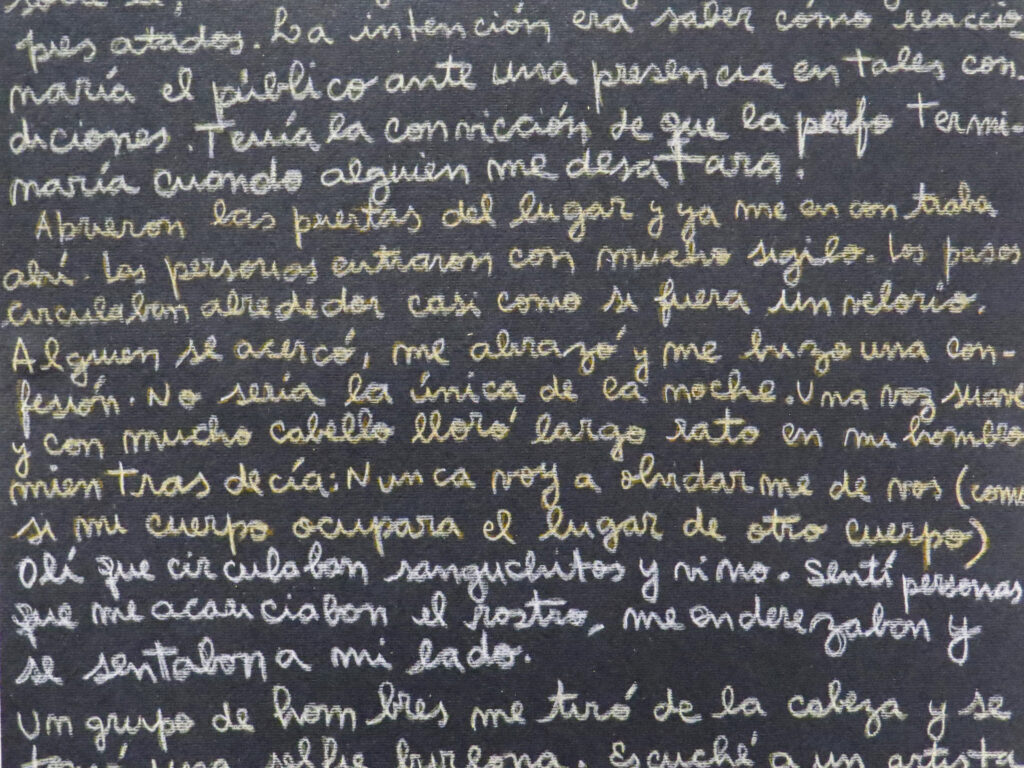 pies atados. La intención era saber cómo reaccio
naría el público ante una presencia en tales con-
diciones. Tenía la convicción de que la perfo termi-
naría cuando alguien me desatara.
Abrieron las puertas del lugar y ya me encontraba
ahí. Las personas entraron con mucho sigilo. Los pasos
circulaban alrededor casi como si fuera un velorio.
Alguien se acercó, me abrazó y me hizo una con-
fesión. No sería la única de la noche. Una voz suave
y con mucho cabello lloró largo rato en mi hombro
mientras decía: Nunca voy a olvidarme de vos (como
si mi cuerpo ocupara el lugar de otro cuerpo)
Olí que circulaban sanguchitos y vino. Sentí personas
que me acariciaban el rostro, me enderezaban y
se sentaban a mi lado.
Un grupo de hombres me tiró de la cabeza y se
tomó una selfie burlona. Escuché a un artista